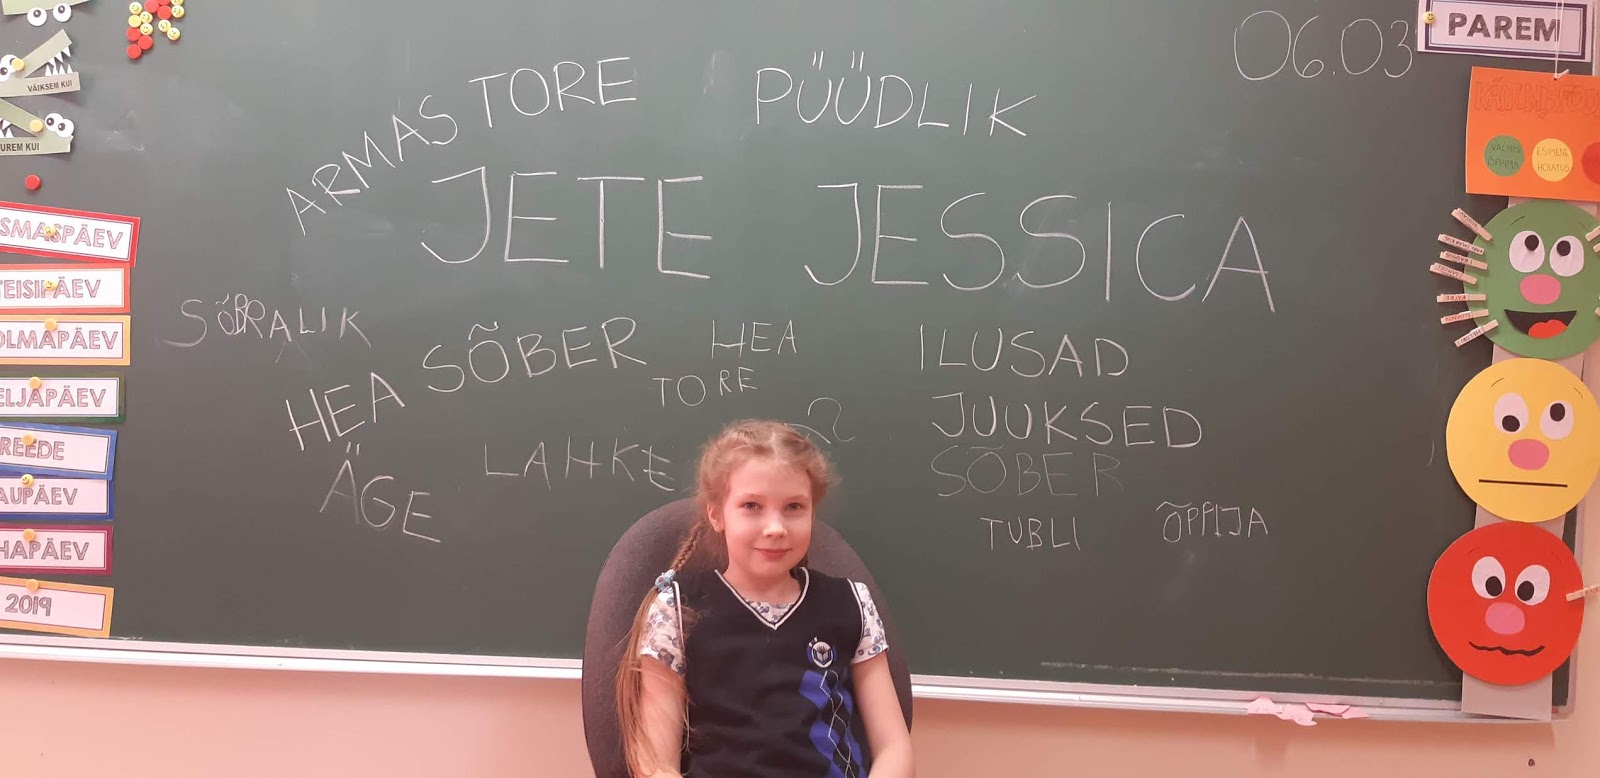 VÄIKSEM KUI
UREM KUI
SMASPÄEV
TEISIPÄEV
OLMAPÄEV
ELJAPÄEV
REEDE
AUPÄEV
HAPÄEV
2019
ARMAS TORE PÜÜDLIK
JETE JESSICA
SÕBRALIK
HEA SÕBER
HEA
TORE
ÄGE
LAHKE
ILUSAD
JUUKSED
SÕBER
TUBLI ÕPPIJA
06.03
PAREM
VALMIS
ÕPPIMA
ESIMENE
HOIATUS